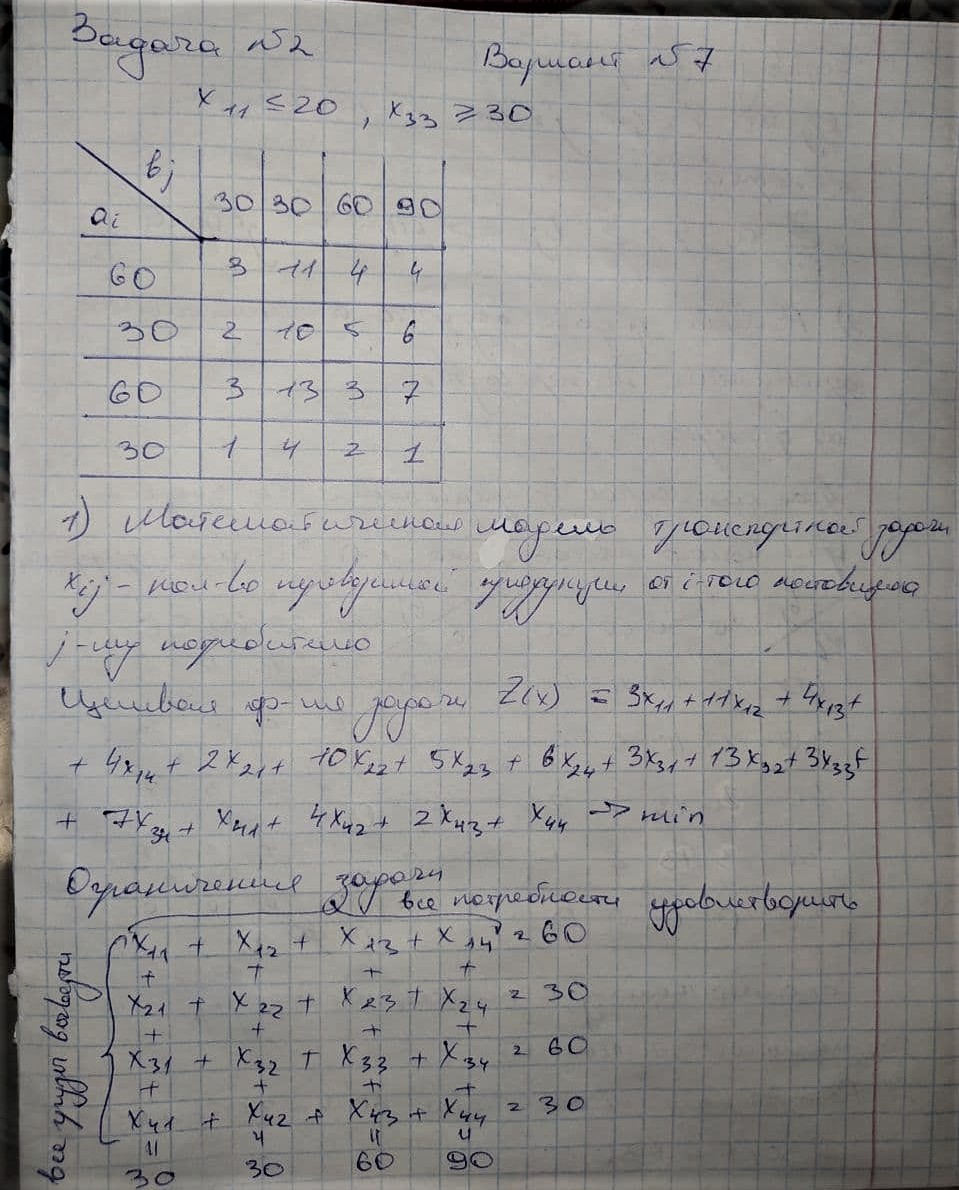 Задача №2
Вариант №7
x₁₁ ≤ 20 , x₃₃ ≥ 30
bj 30 30 60 90
ai
60 3 11 4 4
30 2 10 5 6
60 3 13 3 7
30 1 4 2 1
1) Математическая модель транспортной задачи
xij - кол-во перевозимой продукции от i-того поставщика
j-му потребителю
Целевая ф-ия задачи Z(x) = 3x₁₁ + 11x₁₂ + 4x₁₃ +
+ 4x₁₄ + 2x₂₁ + 10x₂₂ + 5x₂₃ + 6x₂₄ + 3x₃₁ + 13x₃₂ + 3x₃₃ +
+ 7x₃₄ + x₄₁ + 4x₄₂ + 2x₄₃ + x₄₄ -> min
Ограничения задачи
все потребности удовлетворить
все грузы вывезти
x₁₁ + x₁₂ + x₁₃ + x₁₄ = 60
+ + + +
x₂₁ + x₂₂ + x₂₃ + x₂₄ = 30
+ + + +
x₃₁ + x₃₂ + x₃₃ + x₃₄ = 60
+ + + +
x₄₁ + x₄₂ + x₄₃ + x₄₄ = 30
= = = =
30 30 60 90